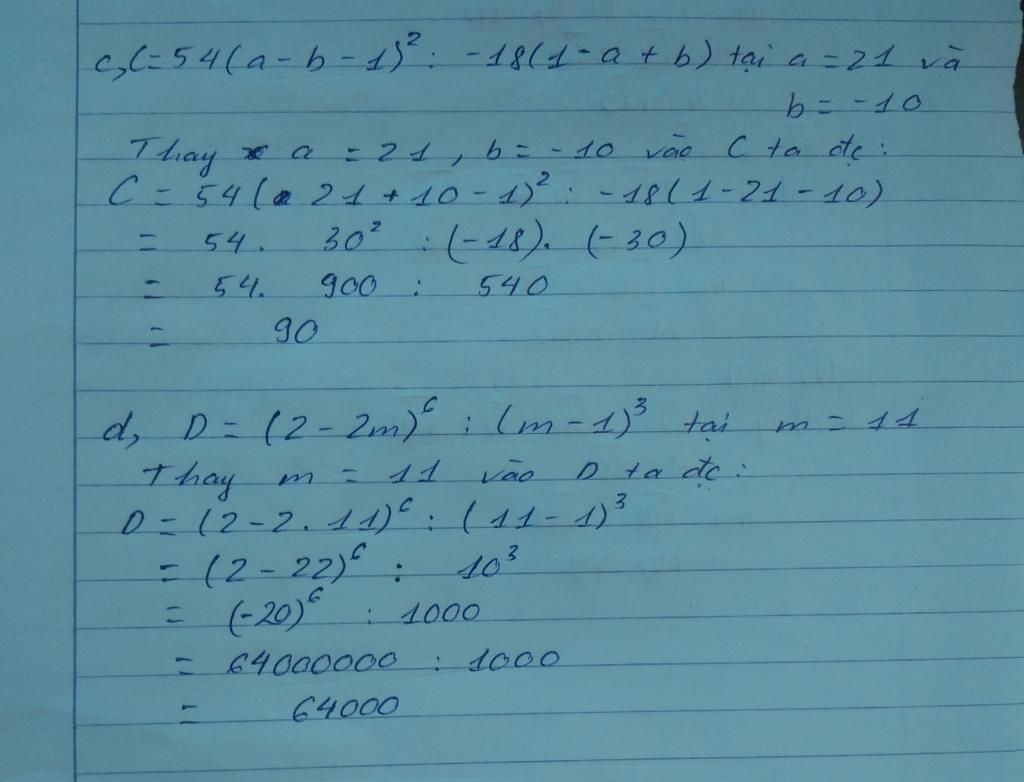 c, C = 54(a - b - 1)² : -18(1 - a + b) tại a = 21 và
b = -10
Thay a = 21, b = -10 vào C ta đc:
C = 54(21 + 10 - 1)² : -18(1 - 21 - 10)
= 54. 30² : (-18). (-30)
= 54. 900 : 540
= 90
d, D = (2 - 2m)⁶ : (m - 1)³ tại m = 11
Thay m = 11 vào D ta đc:
D = (2 - 2. 11)⁶ : (11 - 1)³
= (2 - 22)⁶ : 10³
= (-20)⁶ : 1000
= 64000000 : 1000
= 64000